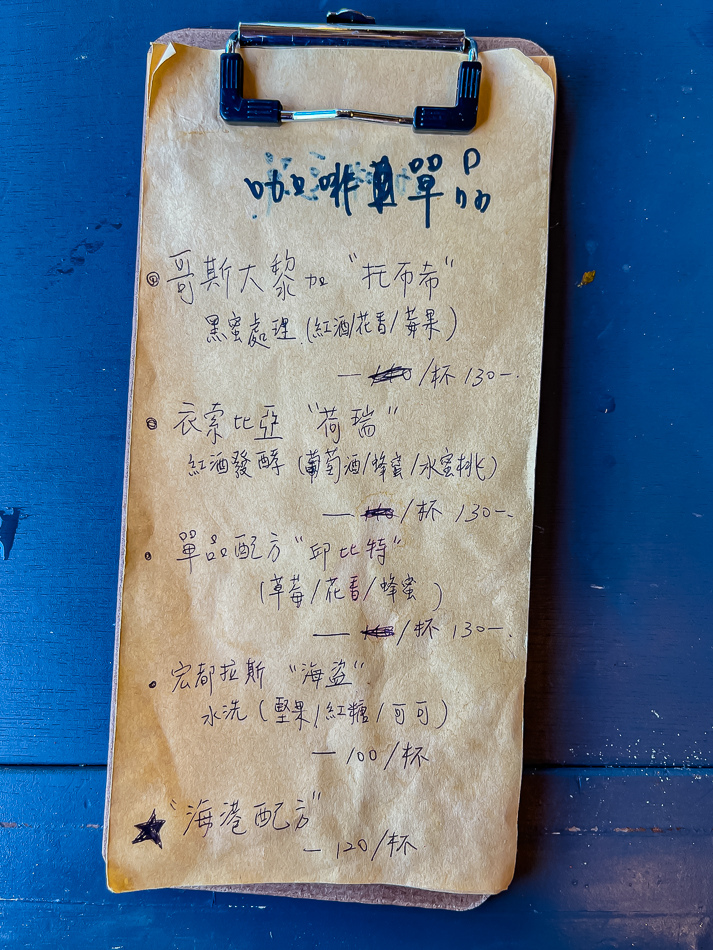 咖啡單品
哥斯大黎加 "托布希"
黑蜜處理 (紅酒/花香/莓果)
— /杯 130-.
衣索比亞 "荷瑞"
紅酒發酵 (葡萄酒/蜂蜜/水蜜桃)
— /杯 130-.
單品配方 "邱比特"
(草莓/花香/蜂蜜)
— /杯 130-.
宏都拉斯 "海盜"
水洗 (堅果/紅糖/可可)
— 100/杯
"海港配方"
— 120/杯